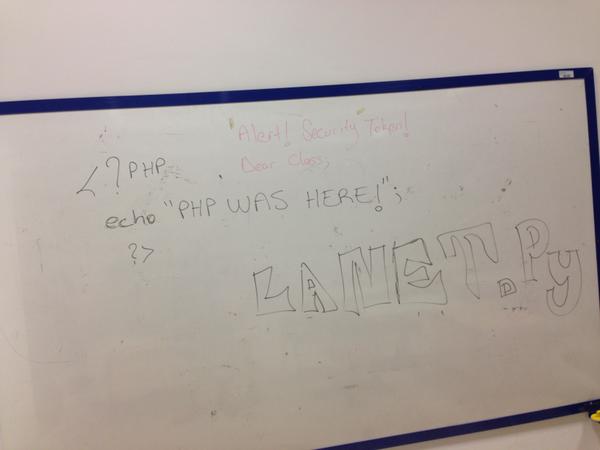 Alert! Security Token!
Dear Class;
<?PHP
echo "PHP WAS HERE!";
?>
LANET.Py